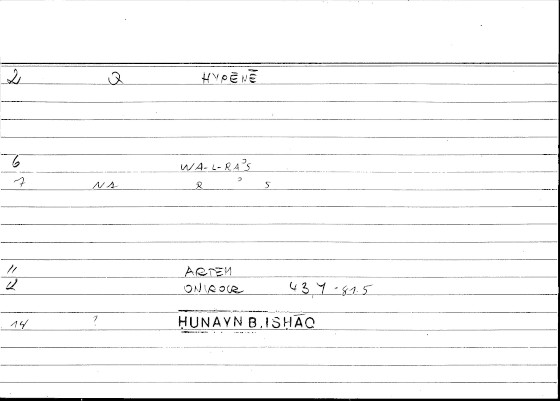 2 Q HYPĒNĒ
6 WA-L-RAʾS
7 NA R ʾ S
11 ARTEM
12 ONIROCR 43,7-81.5
14 ? ḤUNAYN B. ISḤĀQ